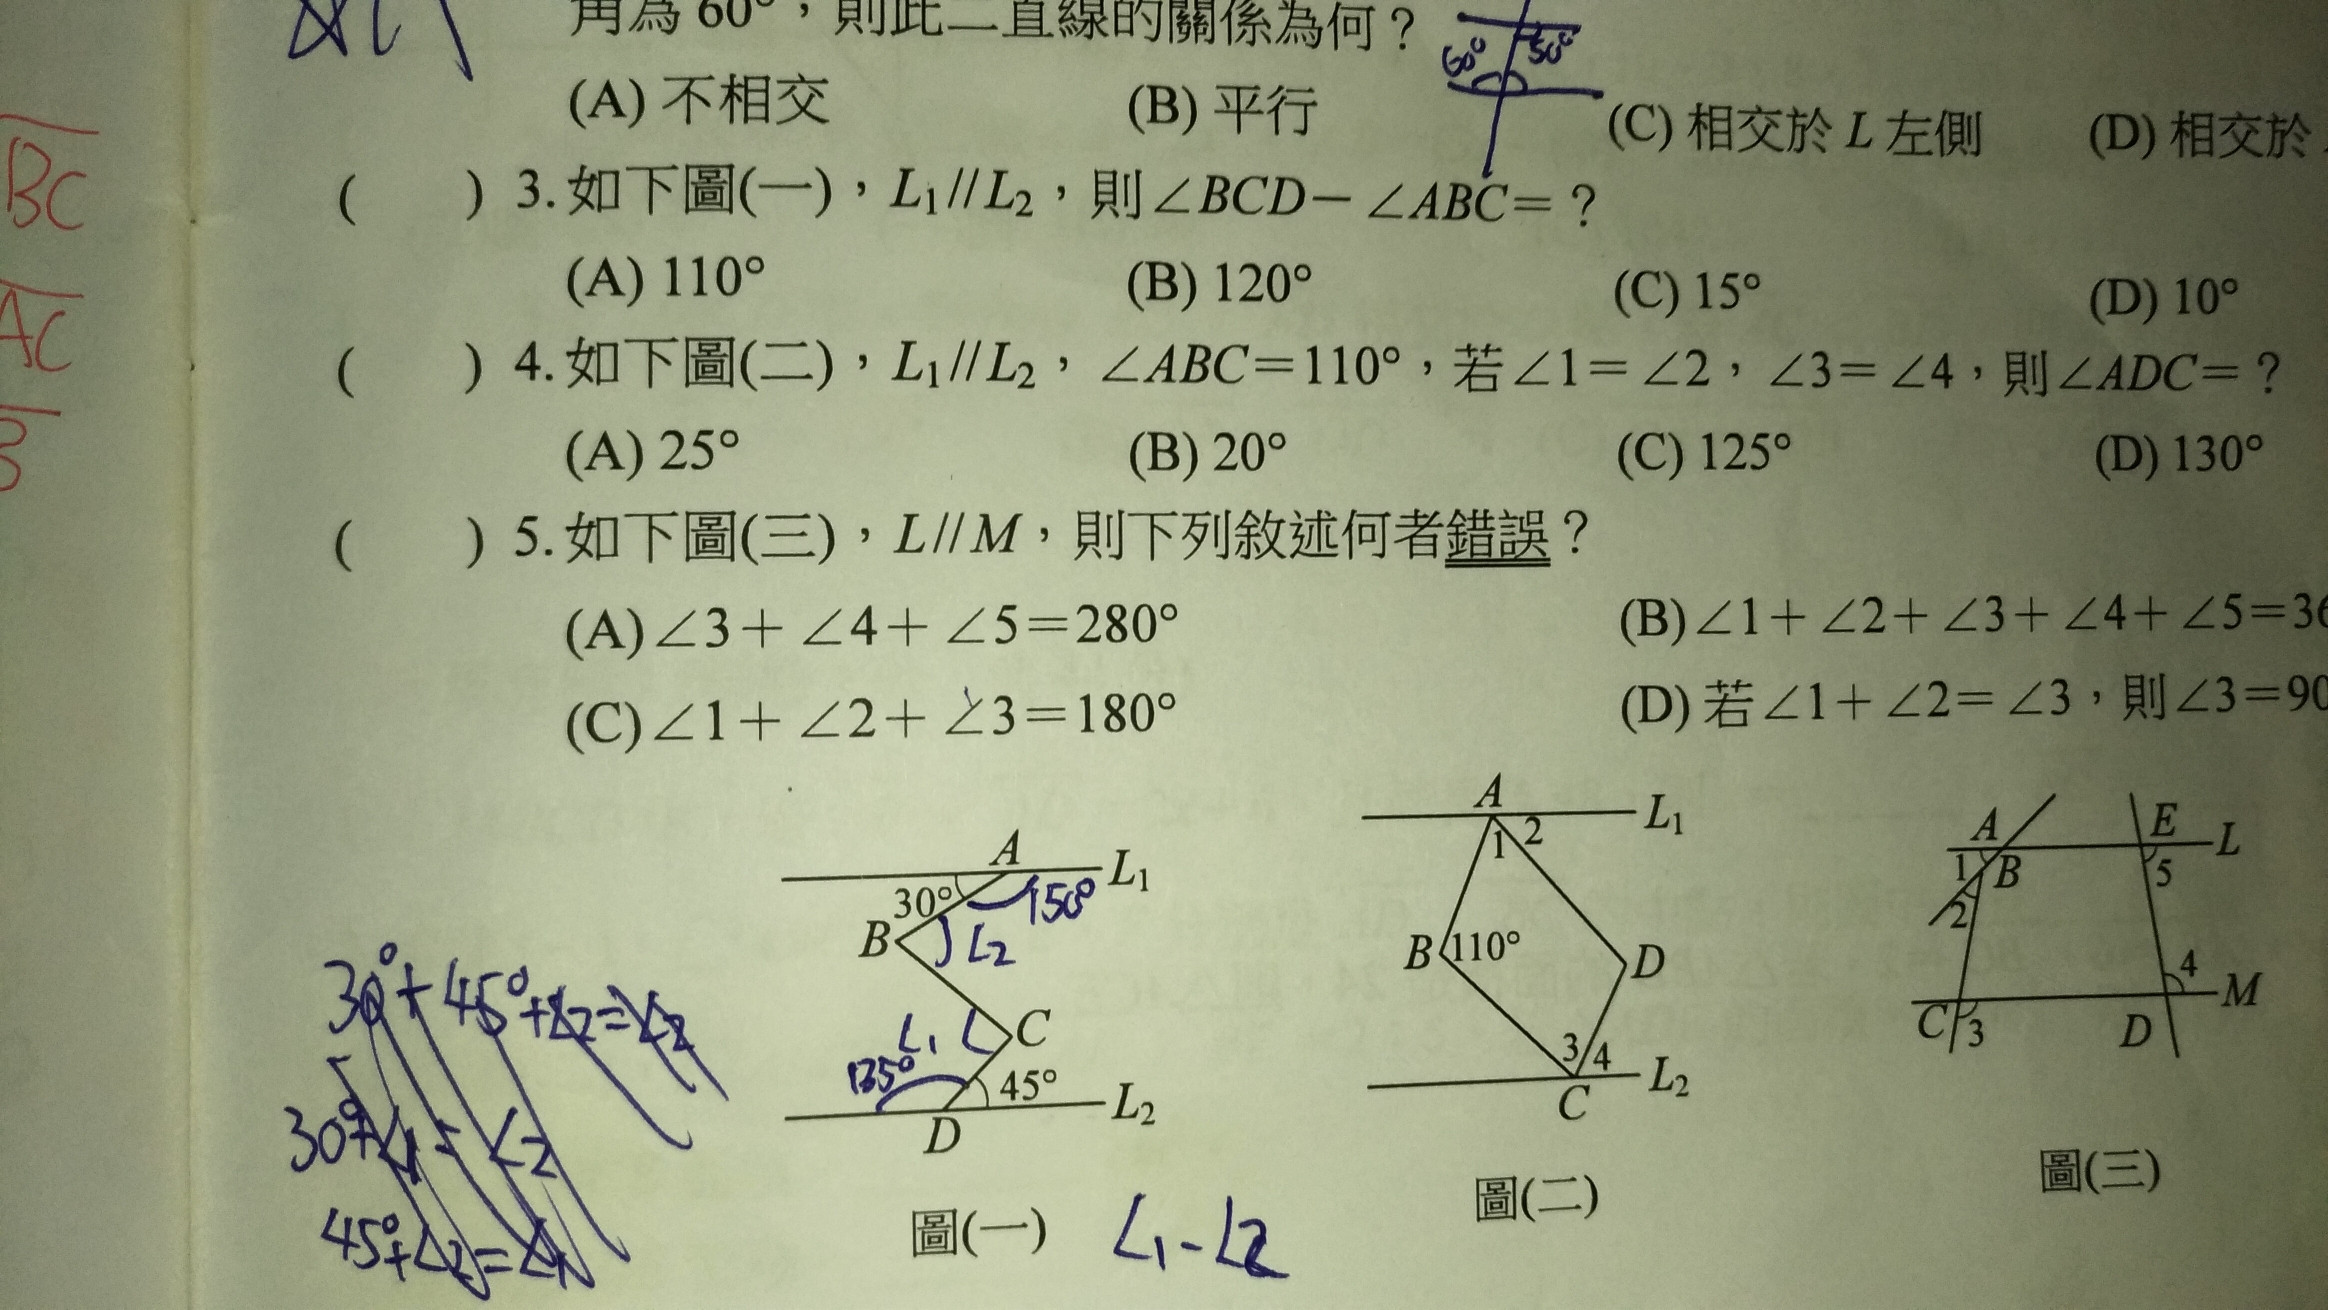 角為 60°，則此二直線的關係為何？
60° 50°
(A) 不相交 (B) 平行 (C) 相交於 L 左側 (D) 相交於
( ) 3. 如下圖(一)，L₁//L₂，則∠BCD－∠ABC＝？
(A) 110° (B) 120° (C) 15° (D) 10°
( ) 4. 如下圖(二)，L₁//L₂，∠ABC＝110°，若∠1＝∠2，∠3＝∠4，則∠ADC＝？
(A) 25° (B) 20° (C) 125° (D) 130°
( ) 5. 如下圖(三)，L//M，則下列敘述何者錯誤？
(A) ∠3＋∠4＋∠5＝280° (B) ∠1＋∠2＋∠3＋∠4＋∠5＝36
(C) ∠1＋∠2＋∠3＝180° (D) 若∠1＋∠2＝∠3，則∠3＝90
BC
AC
A L₁
30° 150°
B ∠2
∠1 C
135° 45°
D L₂
圖(一)
∠1-∠2
A L₁
1 2
B 110° D
3 4
C L₂
圖(二)
A E L
1 B 5
2
4 M
C 3 D
圖(三)
30°+45°+∠2=∠2
30°+∠1=∠2
45°+∠2=∠1